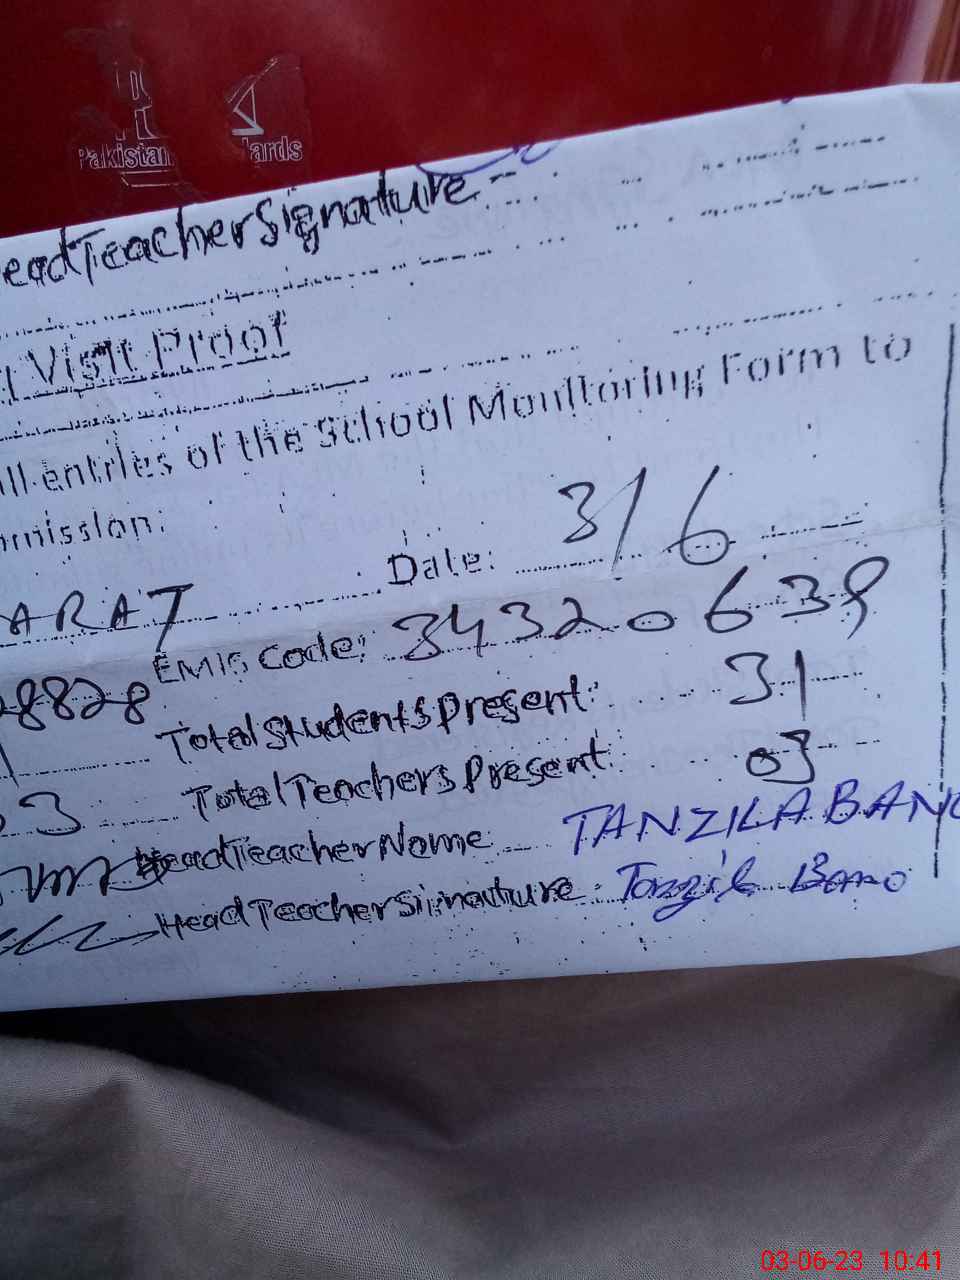 Pakistan ards
eadTeacherSignature
Visit Proof
ll entries of the School Monitoring Form to
mission:
Date: 3/6
ARAT
EMIS Code: 34320639
28828
Total Students Present: 31
Total Teachers Present: 03
3
HeadTeacherName TANZILA BANO
HeadTeacherSignature: Tanzila Bano
03-06-23 10:41